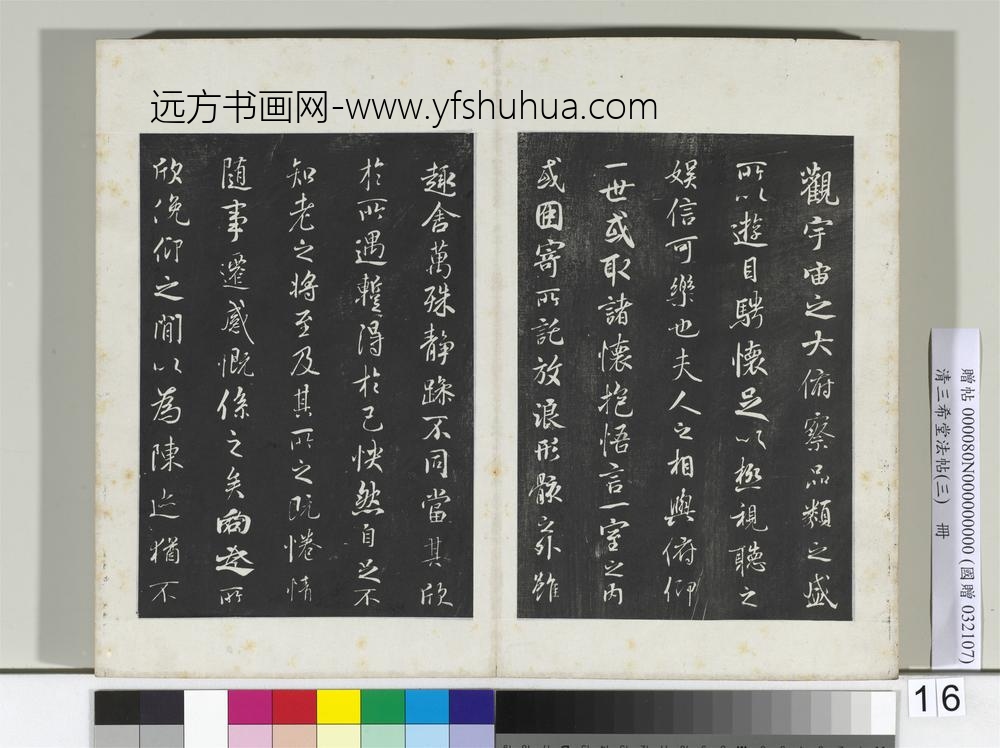 远方书画网-www.yfshuhua.com
觀宇宙之大俯察品類之盛
所以遊目騁懷足以極視聽之
娱信可樂也夫人之相與俯仰
一世或取諸懷抱悟言一室之內
或因寄所託放浪形骸之外雖
趣舍萬殊静躁不同當其欣
於所遇蹔得於己怏然自足不
知老之將至及其所之既惓情
隨事遷感慨係之矣向之所
欣俛仰之間以為陳迹猶不
贈帖 000080N000000000 (國贈 032107)
清三希堂法帖(三) 冊
16